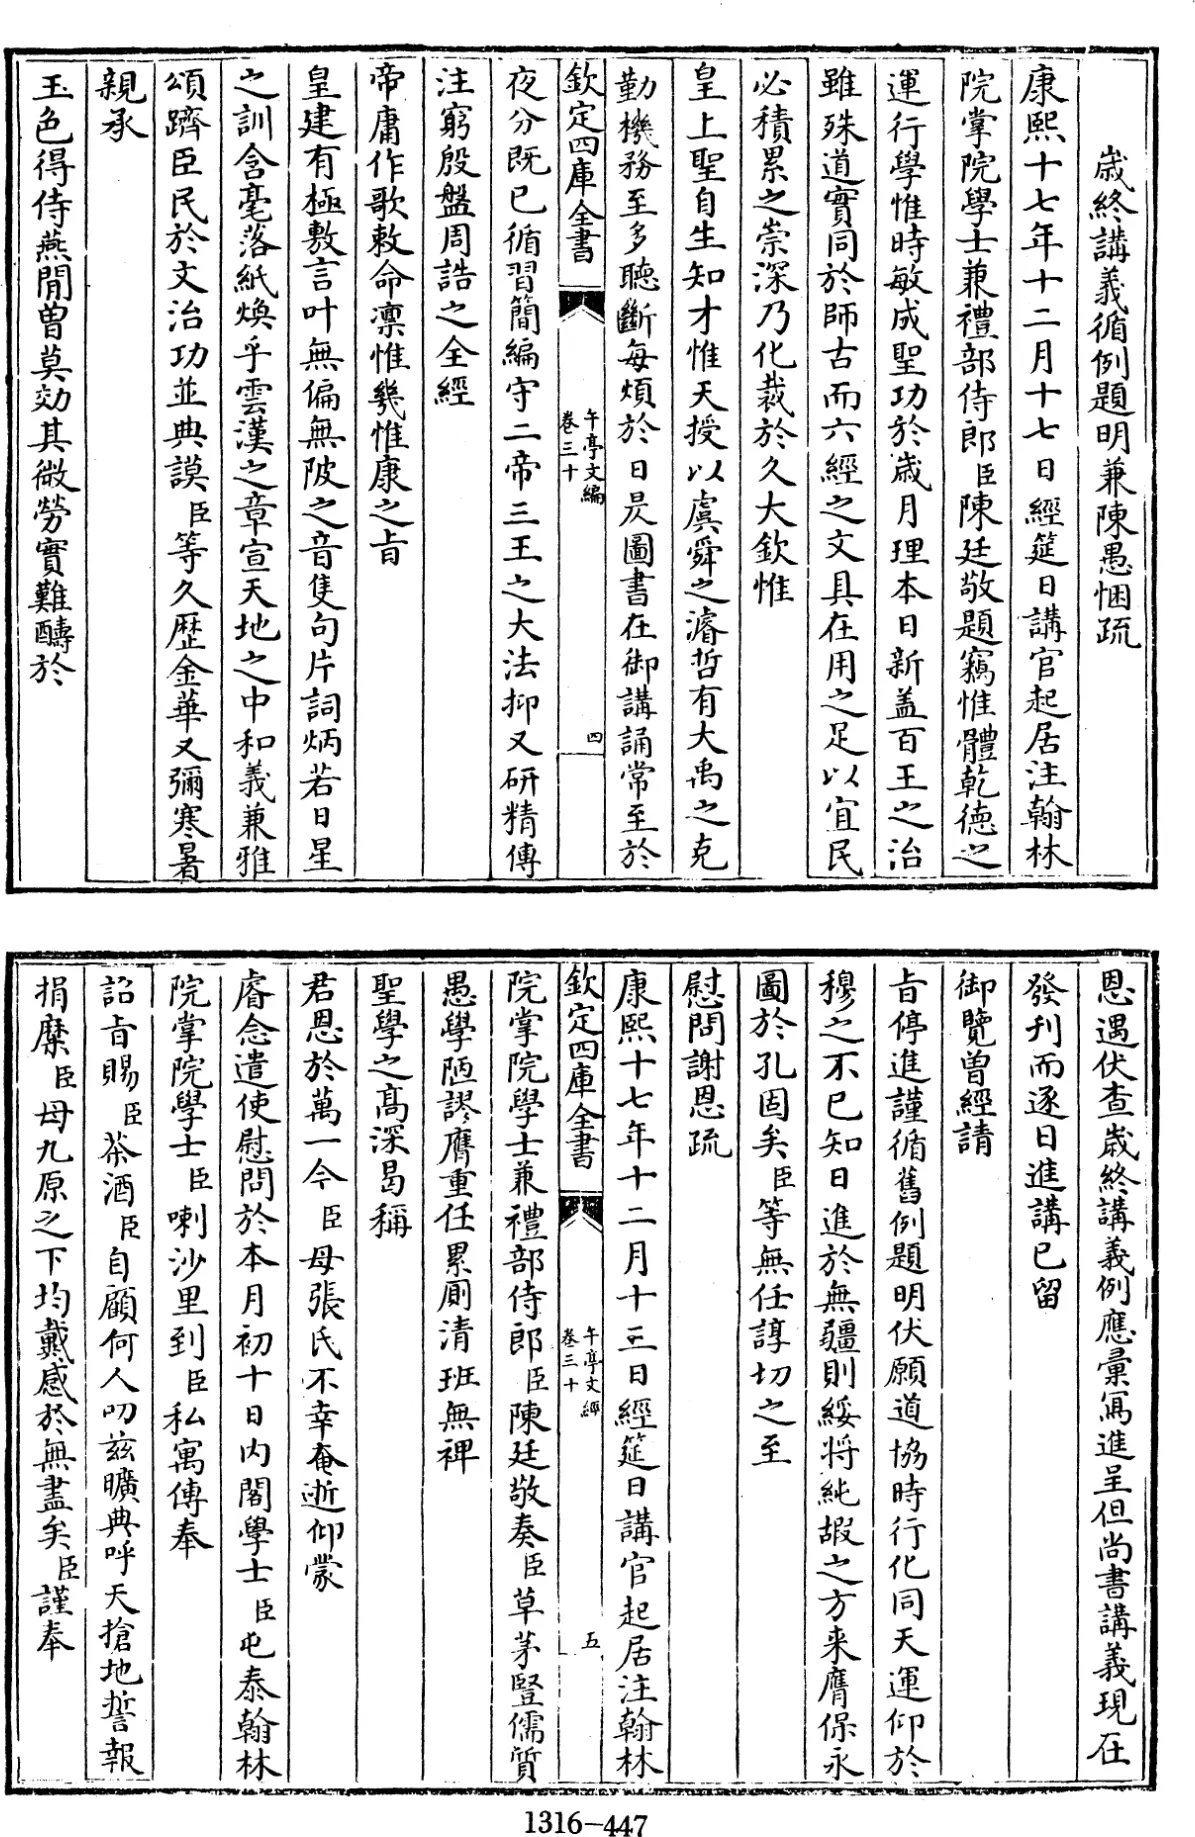 歲終講義循例題明兼陳愚悃疏
康熙十七年十二月十七日經筵日講官起居注翰林
院掌院學士兼禮部侍郎臣陳廷敬題竊惟體乾德之
運行學惟時敏成聖功於歲月理本日新盖百王之治
雖殊道實同於師古而六經之文具在用之足以宜民
必積累之崇深乃化裁於久大欽惟
皇上聖自生知才惟天授以虞舜之濬哲有大禹之克
勤機務至多聽斷每煩於日昃圖書在御講誦常至於
欽定四庫全書
午亭文編
卷三十
四
夜分既已循習簡編守二帝三王之大法抑又研精傳
注窮殷盤周誥之全經
帝庸作歌敕命凛惟幾惟康之旨
皇建有極敷言叶無偏無陂之音隻句片詞炳若日星
之訓含毫落紙煥乎雲漢之章宣天地之中和義兼雅
頌躋臣民於文治功並典謨臣等久歷金華又彌寒暑
親承
玉色得侍燕閒曽莫効其微勞實難醻於
恩遇伏查歲終講義例應彙寫進呈但尚書講義現在
發刊而逐日進講已留
御覽曽經請
旨停進謹循舊例題明伏願道協時行化同天運仰於
穆之不已知日進於無疆則綏将純嘏之方来膺保永
圖於孔固矣臣等無任諄切之至
慰問謝恩疏
康熙十七年十二月十三日經筵日講官起居注翰林
欽定四庫全書
午亭文編
卷三十
五
院掌院學士兼禮部侍郎臣陳廷敬奏臣草茅豎儒質
愚學陋謬膺重任累厠清班無裨
聖學之髙深曷稱
君恩於萬一今臣母張氏不幸奄逝仰蒙
睿念遣使慰問於本月初十日内閣學士臣屯泰翰林
院掌院學士臣喇沙里到臣私寓傳奉
詔旨賜臣茶酒臣自顧何人叨兹曠典呼天搶地誓報
捐糜臣母九原之下均戴感於無盡矣臣謹奉
1316-447